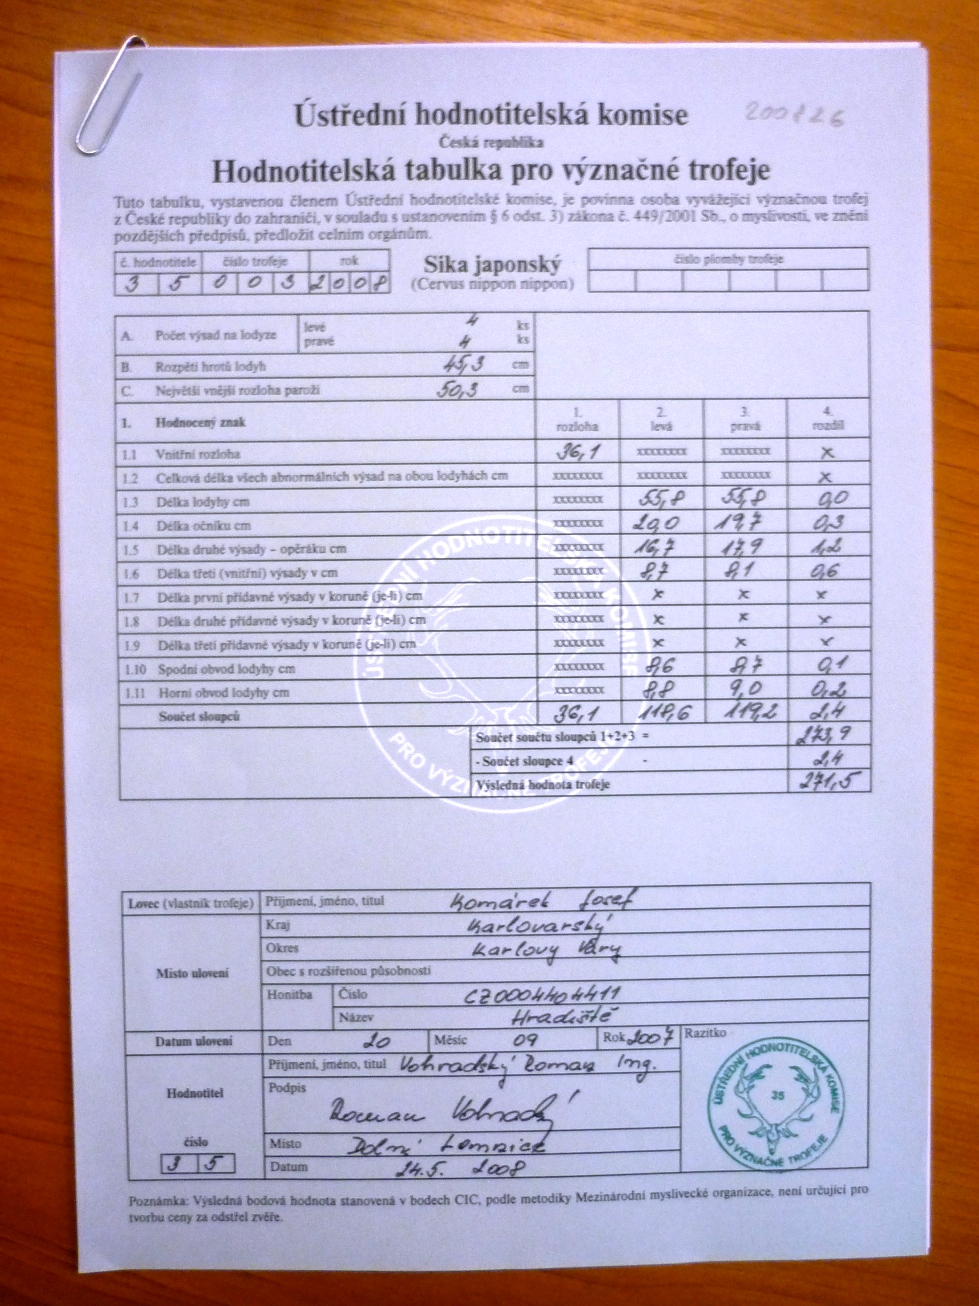 Ústřední hodnotitelská komise
200826
Česká republika
Hodnotitelská tabulka pro význačné trofeje
Tuto tabulku, vystavenou členem Ústřední hodnotitelské komise, je povinna osoba vyvážející význačnou trofej
z České republiky do zahraničí, v souladu s ustanovením § 6 odst. 3) zákona č. 449/2001 Sb., o myslivosti, ve znění
pozdějších předpisů, předložit celním orgánům.
č. hodnotitele číslo trofeje rok
3 5 0 0 3 2 0 0 8
Sika japonský
(Cervus nippon nippon)
číslo plomby trofeje
A. Počet výsad na lodyze levé 4 ks
pravé 4 ks
B. Rozpětí hrotů lodyh 45,3 cm
C. Největší vnější rozloha paroží 50,3 cm
1. Hodnocený znak 1. rozloha 2. levá 3. pravá 4. rozdíl
1.1 Vnitřní rozloha 36,1 xxxxxxxx xxxxxxxx x
1.2 Celková délka všech abnormálních výsad na obou lodyhách cm xxxxxxxx xxxxxxxx xxxxxxxx x
1.3 Délka lodyhy cm xxxxxxxx 55,8 55,8 0,0
1.4 Délka očníku cm xxxxxxxx 20,0 19,7 0,3
1.5 Délka druhé výsady – opěráku cm xxxxxxxx 16,7 17,9 1,2
1.6 Délka třetí (vnitřní) výsady v cm xxxxxxxx 8,7 8,1 0,6
1.7 Délka první přídavné výsady v koruně (je-li) cm xxxxxxxx x x x
1.8 Délka druhé přídavné výsady v koruně (je-li) cm xxxxxxxx x x x
1.9 Délka třetí přídavné výsady v koruně (je-li) cm xxxxxxxx x x x
1.10 Spodní obvod lodyhy cm xxxxxxxx 8,6 8,7 0,1
1.11 Horní obvod lodyhy cm xxxxxxxx 8,8 9,0 0,2
Součet sloupců 36,1 118,6 119,2 2,4
Součet součtu sloupců 1+2+3 = 273,9
- Součet sloupce 4 - 2,4
Výsledná hodnota trofeje 271,5
ÚSTŘEDNÍ HODNOTITELSKÁ KOMISE
PRO VÝZNAČNÉ TROFEJE
Lovec (vlastník trofeje) Příjmení, jméno, titul Komárek Josef
Místo ulovení Kraj Karlovarský
Okres Karlovy Vary
Obec s rozšířenou působností
Honitba Číslo CZ0004404411
Název Hradiště
Datum ulovení Den 20 Měsíc 09 Rok 2007 Razítko
Hodnotitel Příjmení, jméno, titul Vohradský Roman Ing.
Podpis Roman Vohradský
číslo 3 5
Místo Dolní Lomnice
Datum 24.5. 2008
ÚSTŘEDNÍ HODNOTITELSKÁ KOMISE
35
PRO VÝZNAČNÉ TROFEJE
Poznámka: Výsledná bodová hodnota stanovená v bodech CIC, podle metodiky Mezinárodní myslivecké organizace, není určující pro
tvorbu ceny za odstřel zvěře.